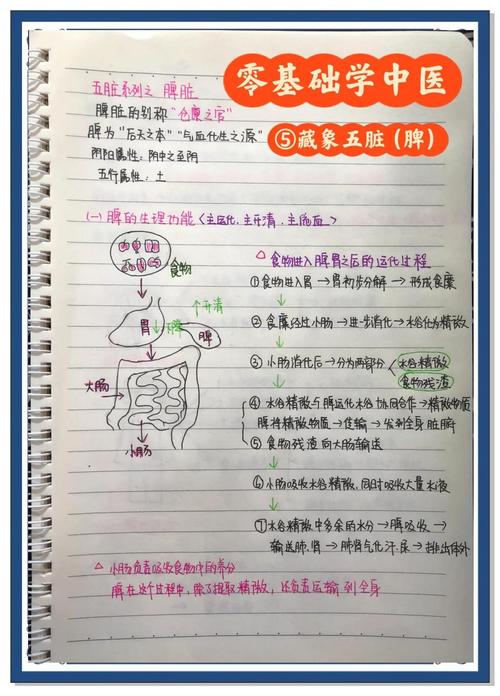 零基础学中医
⑤藏象五脏(脾)
五脏系列之 脾脏
脾脏的别称"仓廪之官"
脾为"后天之本""气血化生之源"
阴阳属性:阴中之至阴
五行属性:土
(一)脾的生理功能〈主运化,主升清,主统血〉
食物
胃
脾
↑升清
脾
大肠
小肠
△食物进入脾胃之后的运化过程
①食物进入胃→胃初步分解→形成食糜
②食糜经过小肠→进一步消化→水谷化为精微
③小肠消化后→分为两部分
水谷精微
食物残渣
④水谷精微与脾运化水谷协同合作→精微物质
脾将精微物质→传输→发到全身脏腑
⑤食物残渣向大肠输送
⑥小肠吸收水谷精微,同时吸收大量水液
⑦水谷精微中多余的水分→脾吸收→
输送肺.肾→肺肾气化汗.尿→排出体外
△小肠负责吸收食物中的养分
脾在这个过程中,除了提取精微,还负责运输到全身